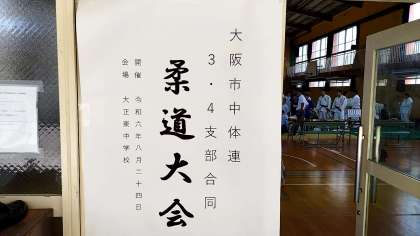 大阪市中体連
3・4支部合同
柔道大会
開催 令和六年八月二十四日
会場 大正東中学校